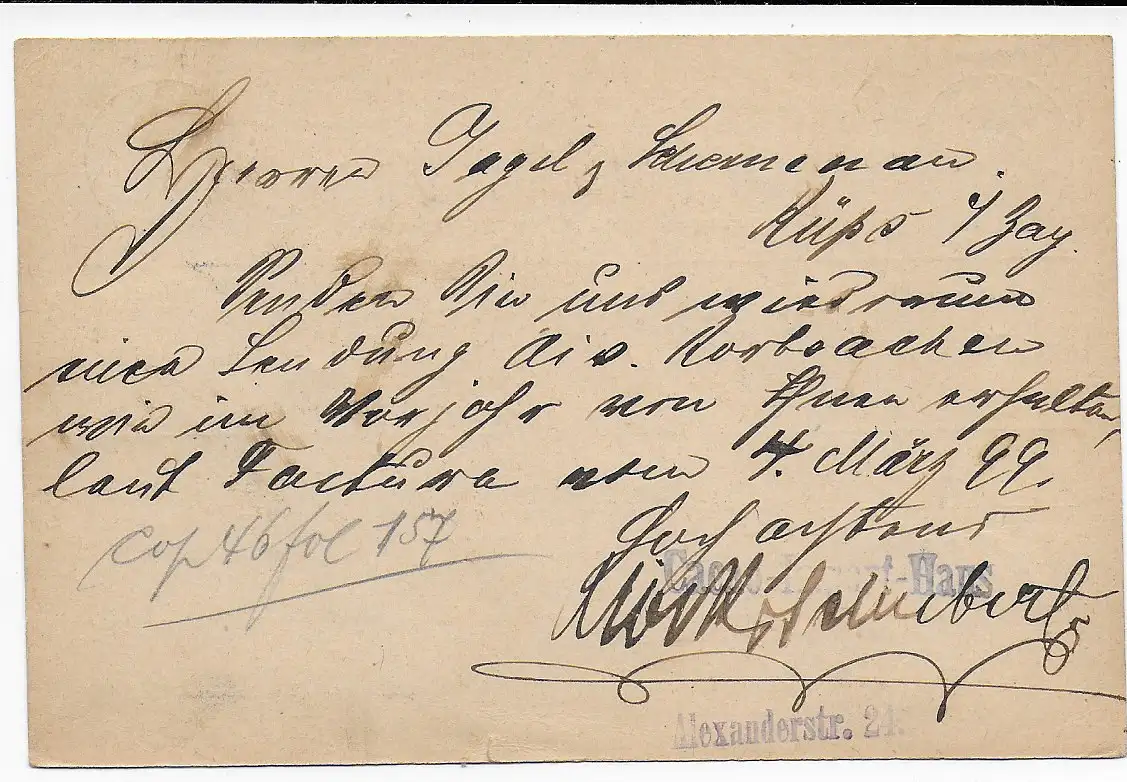 Herren Jagel & Schemenau.
Küps i/ Bay.
Senden Sie uns wiedrum
eine Sendung div. Korbsachen
wie im Vorjahr von Ihnen erhalten,
laut Factura vom 4. März 99.
Hochachtend
cop 46 fol 157
Cacao- -Haus
Alexanderstr. 24.